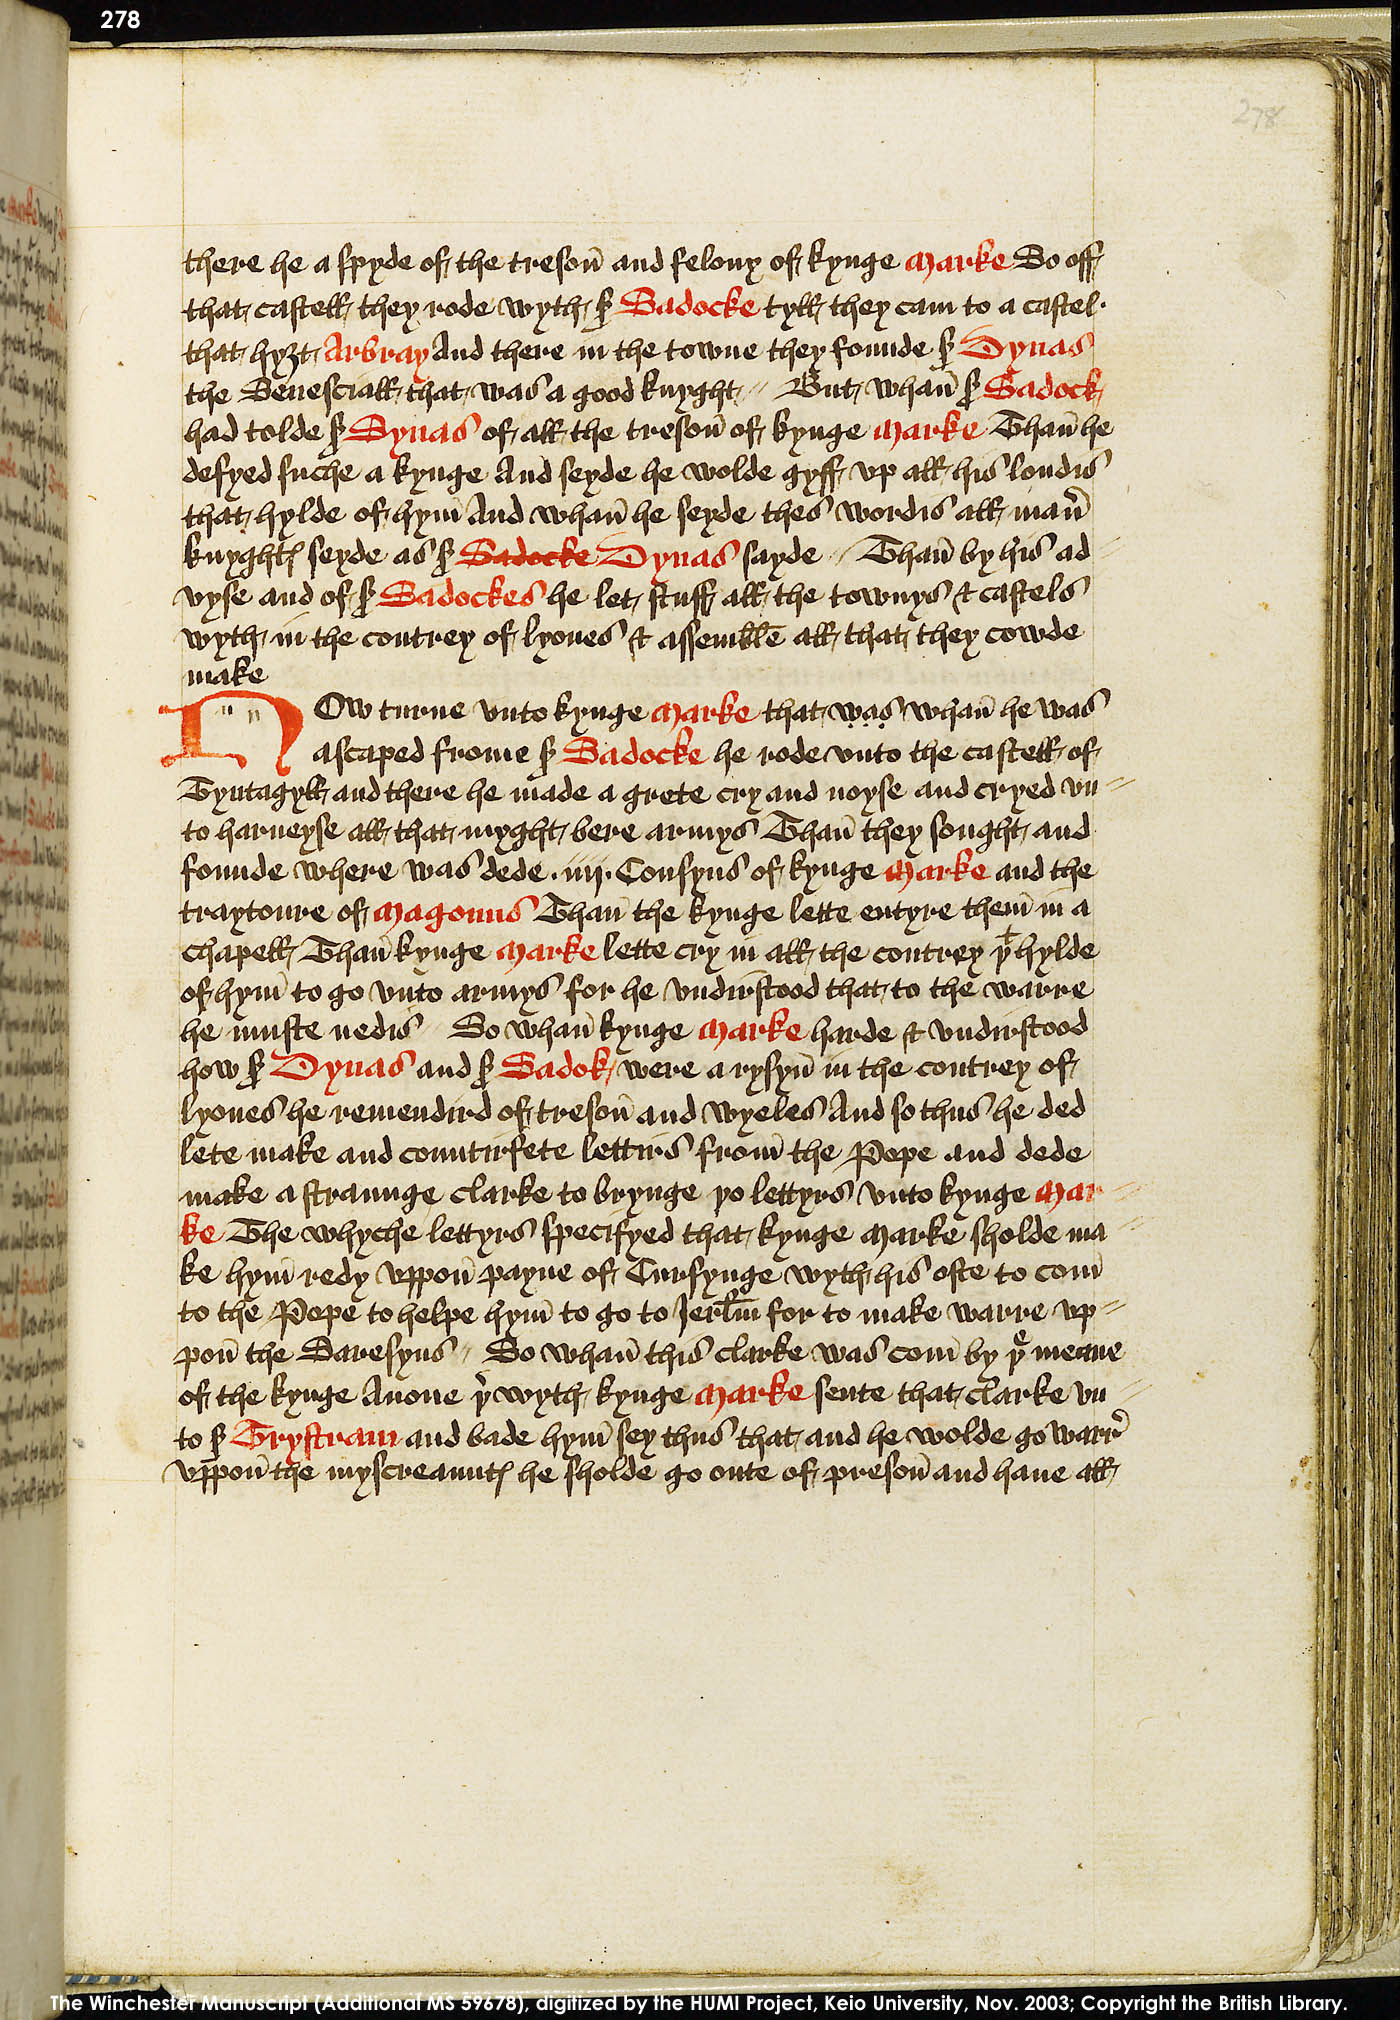 278
278
there he a spyde of the tresoū and felony of kynge Marke So off
that castell they rode wyth sʳ Sadocke tyll they cam to a castel
that hyȝt Arbray And there in the towne they founde sʳ Dynas
the Senesciall that was a good knyght // But whaū sʳ Sadock
had tolde sʳ Dynas of all the tresoū of kynge Marke Thaū he
defyed suche a kynge And seyde he wolde gyff vp all his londis
that hylde of hym̄ And whaū he seyde thes wordis all man̄
knyghtꝭ seyde as sʳ Sadocke Dynas sayde // Thaū by his ad
vyse and of sʳ Sadockes he let stuff all the townys & castels
wyth in the contrey of lyones & assemblē all that they cowde
make
NOw turne vnto kynge Marke that was whaū he was
ascaped frome sʳ Sadocke he rode vnto the castell of
Tyntagyll and there he made a grete cry and noyse and cryed vn
to harneyse all that myght bere armys Thaū they sought and
founde where was dede .iiij. Cosyns of kynge Marke and the
traytoure of Magouns Thaū the kynge lette entyre them̄ in a
chapell Thaū kynge Marke lette cry in all the contrey yᵗ hylde
of hym̄ to go vnto armys for he vndirstood that to the warre
he muste nedis So whaū kynge Marke harde & vndirstood
how sʳ Dynas and sʳ Sadok were a rysyn̄ in the contrey of
lyones he remendird of tresoū and wyeles And so thus he ded
lete make and countirfete lettirs from̄ the Pope and dede
make a straunge clarke to brynge yo lettyrs vnto kynge Mar
ke The whyche lettyrs specifyed that kynge Marke sholde ma
ke hym̄ redy vppon̄ payne of Cursynge wyth his oste to com̄
to the Pope to helpe hym̄ to go to Jerlm̄ for to make warre vp
pon̄ the Saresyns // So whaū this clarke was com̄ by yᵉ meane
of the kynge Anone yʳ wyth kynge Marke sente that clarke vn
to sʳ Trystram and bade hym̄ sey thus that and he wolde go warr̄
vppon̄ the myscreauntꝭ he sholde go oute of preson̄ and haue all
The Winchester Manuscript (Additional MS 59678), digitized by the HUMI Project, Keio University, Nov. 2003; Copyright the British Library.